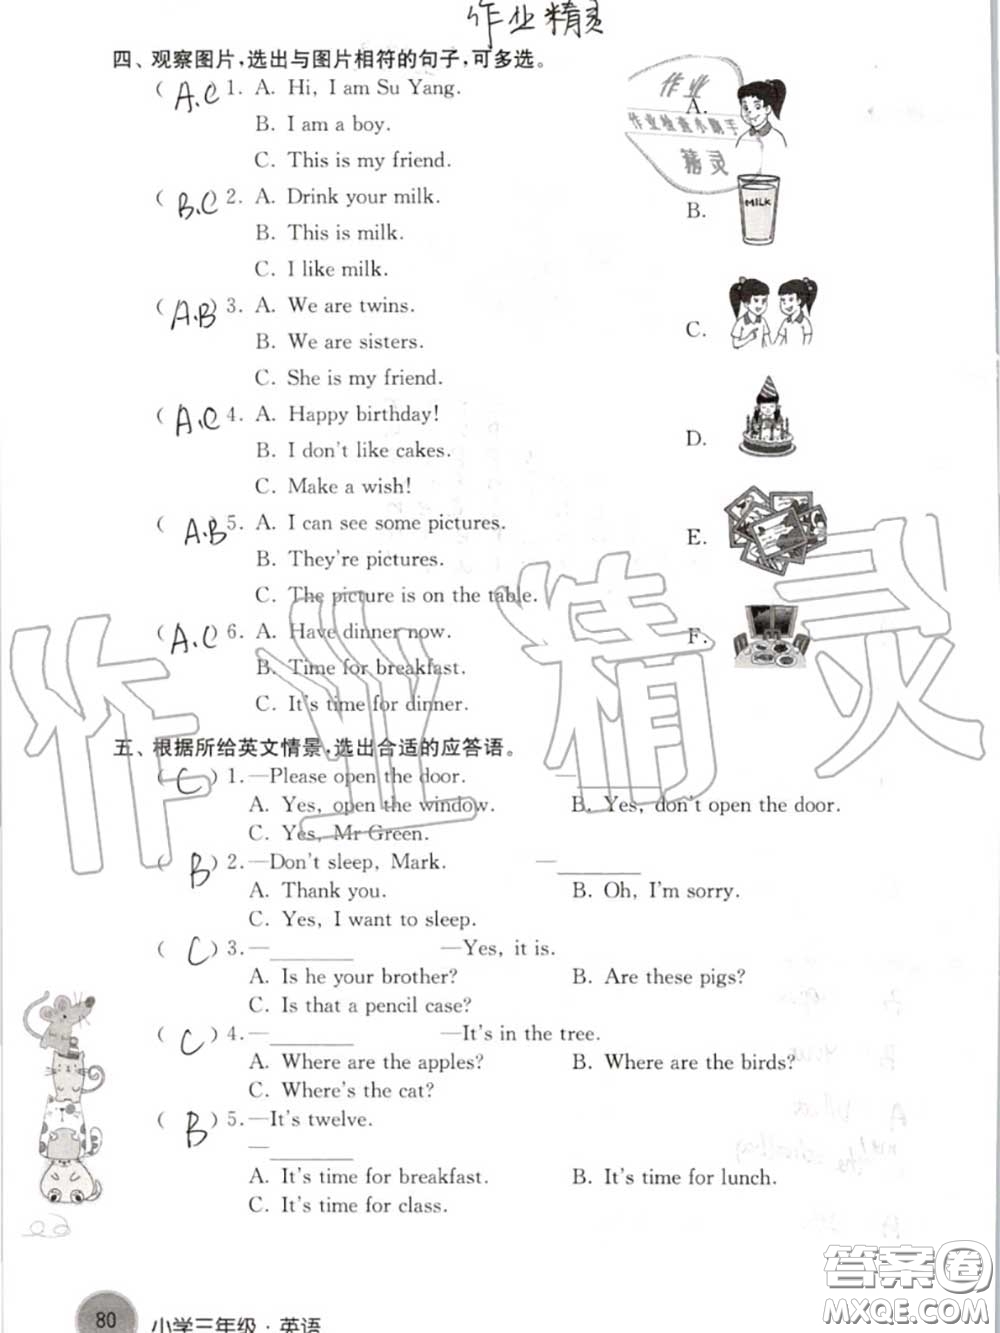 作业精灵
四、观察图片,选出与图片相符的句子,可多选。
( A.C ) 1. A. Hi, I am Su Yang.
B. I am a boy.
C. This is my friend.
A.
作业
作业检查小助手
精灵
( B.C ) 2. A. Drink your milk.
B. This is milk.
C. I like milk.
B.
MILK
( A.B ) 3. A. We are twins.
B. We are sisters.
C. She is my friend.
C.
( A.C ) 4. A. Happy birthday!
B. I don't like cakes.
C. Make a wish!
D.
( A.B ) 5. A. I can see some pictures.
B. They're pictures.
C. The picture is on the table.
E.
( A.C ) 6. A. Have dinner now.
B. Time for breakfast.
C. It's time for dinner.
F.
作业精灵
五、根据所给英文情景,选出合适的应答语。
( C ) 1. —Please open the door. —
A. Yes, open the window. B. Yes, don't open the door.
C. Yes, Mr Green.
( B ) 2. —Don't sleep, Mark. —________
A. Thank you. B. Oh, I'm sorry.
C. Yes, I want to sleep.
( C ) 3. —________ —Yes, it is.
A. Is he your brother? B. Are these pigs?
C. Is that a pencil case?
( C ) 4. —________ —It's in the tree.
A. Where are the apples? B. Where are the birds?
C. Where's the cat?
( B ) 5. —It's twelve.
—________
A. It's time for breakfast. B. It's time for lunch.
C. It's time for class.
80 小学三年级·英语
答案圈
MXQE.COM